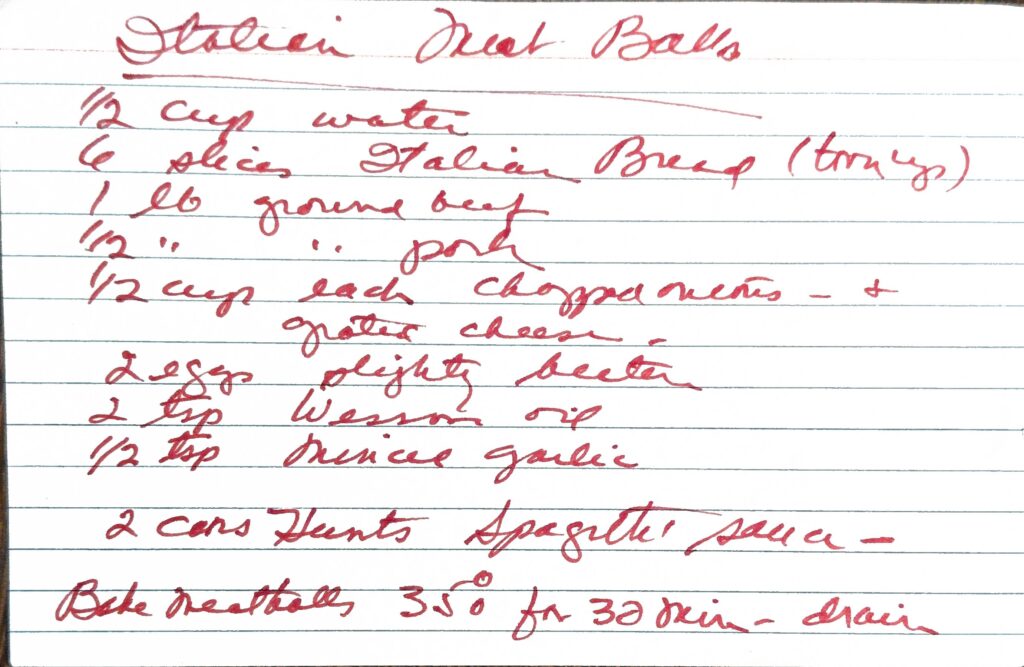 Italian Meat Balls
1/2 cup water
6 slices Italian Bread (torn up)
1 lb ground beef
1/2 " " pork
1/2 cup each chopped onions - &
grated cheese -
2 eggs slightly beaten
2 tsp Wesson oil
1/2 tsp minced garlic
2 cans Hunts Spagetti sauce -
Bake meatballs 350° for 30 min - drain